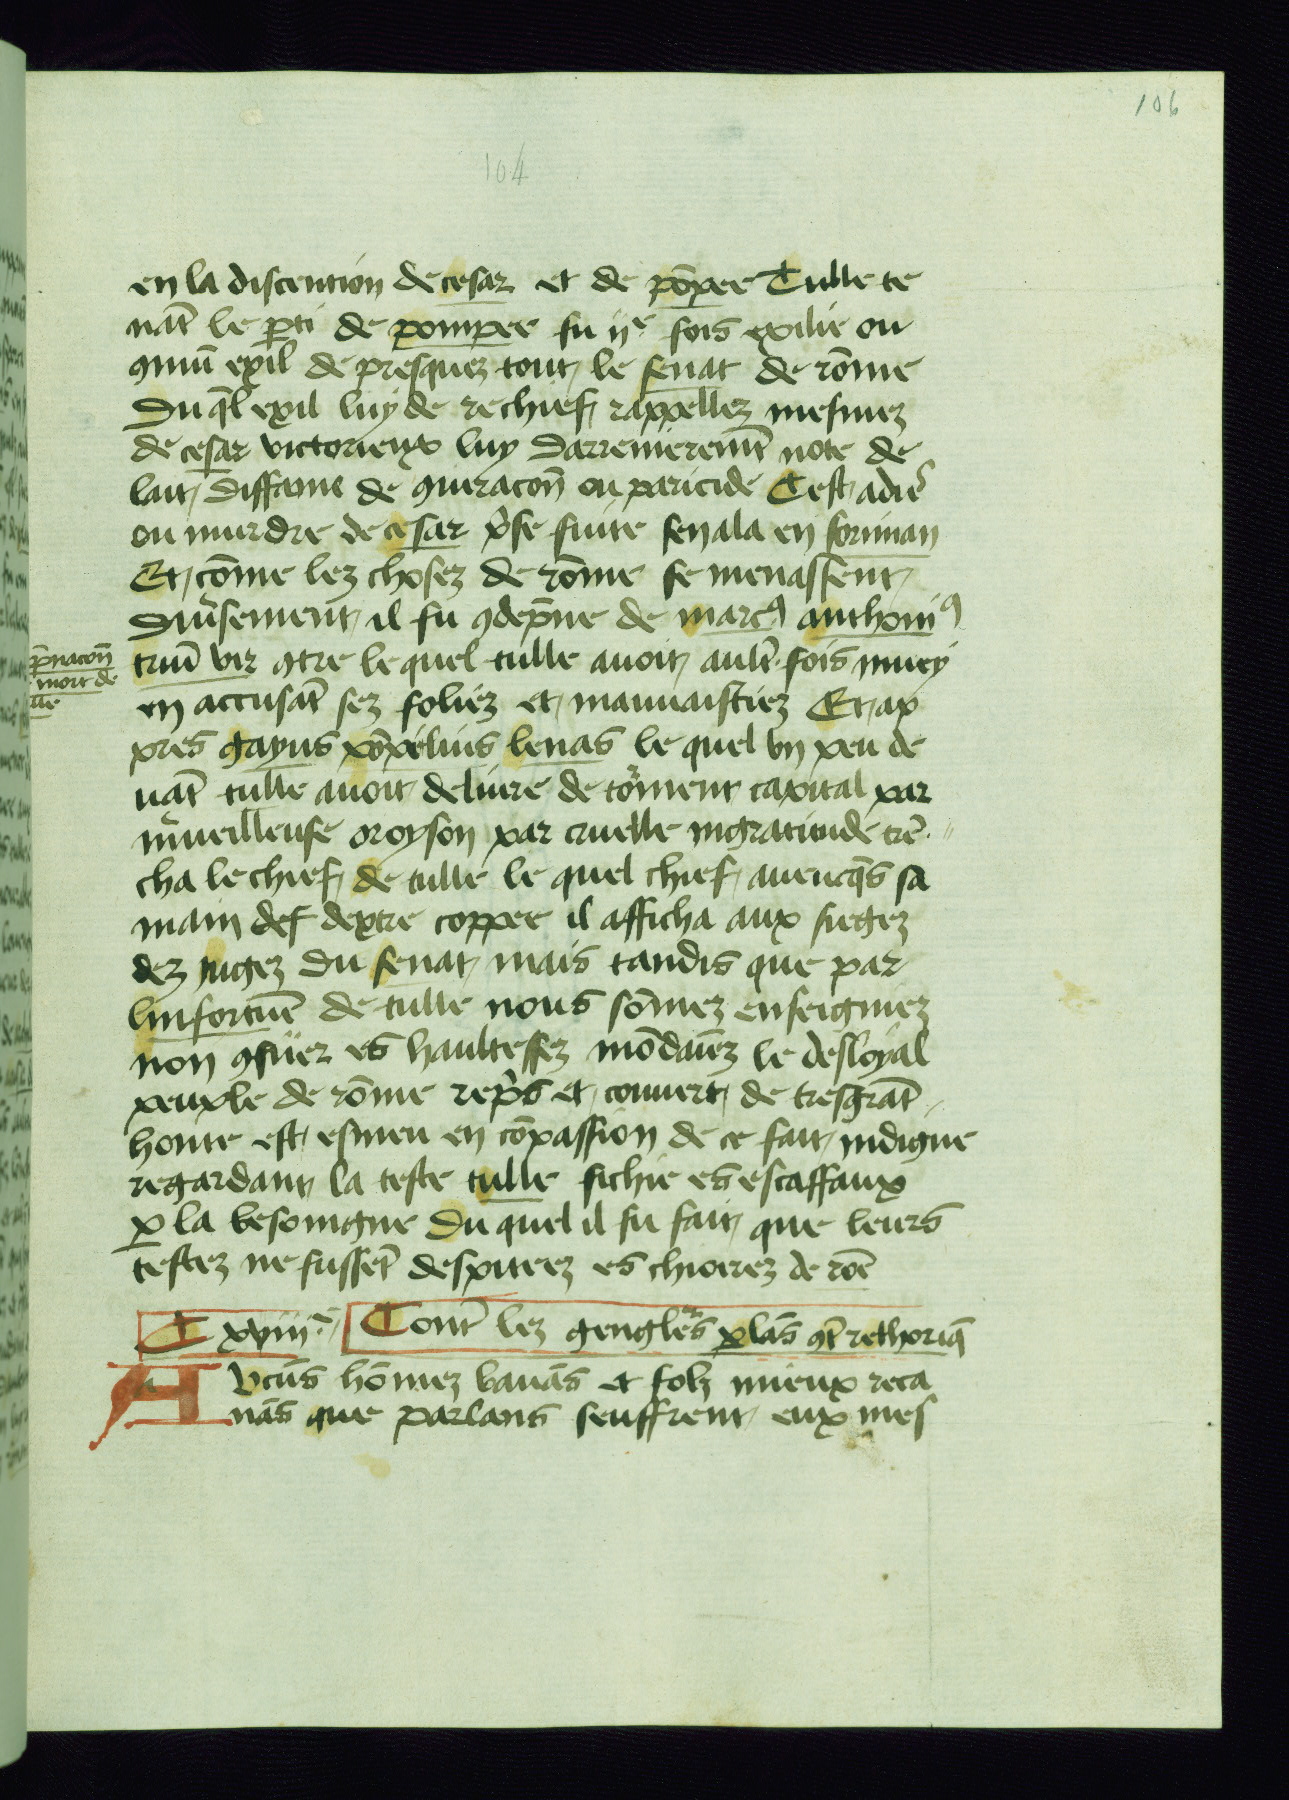 106
104
en la discention de cesar et de põpee Tulle te
nāt le ꝑti de pompee fu ijᵉ fois exilie ou
ꝯmū exil de presquez tout le senat de rōme
Du q̄l exil luy de rechief rappellez mesmez
de cesar victorieux luy darrenieremt̄ note de
lait diffame de ꝯiuracoñ ou paricide Cest adir̄
ou murdre de cesar p̃se fuite sen ala en forman
Et cōme lez chosez de rōme se menassent
diũsement il fu ꝯdēpne de marcꝰ anthoniꝰ
triū vir ꝯtre le quel tulle auoit ault̃ fois inuey
en accusāt sez foliez et mauuaistiez Et ap
pres gayus põpilius lenas le quel vn peu de
uāt tulle auoit deliure de torment capital par
m̃ueilleuse oroyson par cruelle ingratitude trē
cha le chief de tulle le quel chief auencq̄s sa
main def dextre coppee il afficha aux siegez
dez iugez du senat mais tandis que par
linfortūe de tulle nous sōmez enseigniez
non ꝯfiier es haultessez mōdaīez le desloyal
peuple de rōme rep̃s et couuert de tresgrāt
honte est esmeu en cōpassion de ce fait indigne
regardant la teste tulle fichie es escaffaux
ꝑ la besoingne du quel il fu fait que leurs
testez ne fussēt despiteez es chiorez de rōe
p̄nacoñ
mort de
lle
C xviijᵉ Cont̃ lez gengleʳs ꝑlās ꝯt̃ rethoriq̄
A Vcūs hōmez bauās et folz mieux reca
nās que parlans seuffrent eux mes